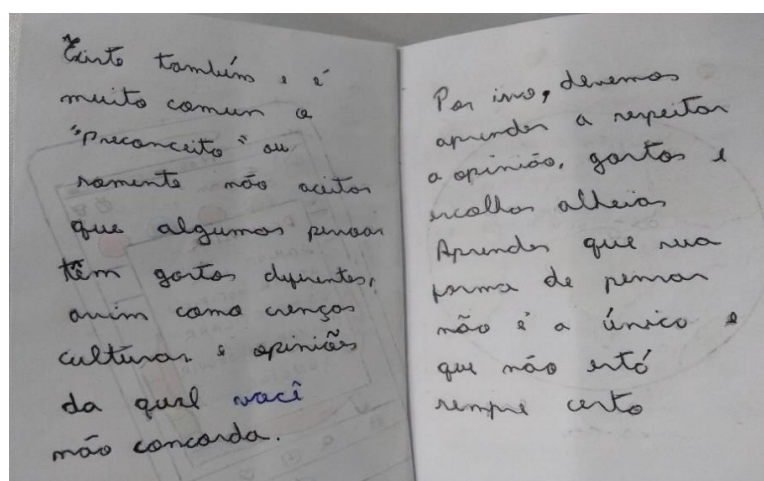 Existe também, e é
muito comum o
"Preconceito" ou
somente não aceitar
que algumas pessoas
têm gostos diferentes,
assim como crenças
culturas e opiniões
da qual você
não concorda.
Por isso, devemos
aprender a respeitar
a opinião, gostos e
escolhas alheias
Aprender que sua
forma de pensar
não é a único e
que não está
sempre certo